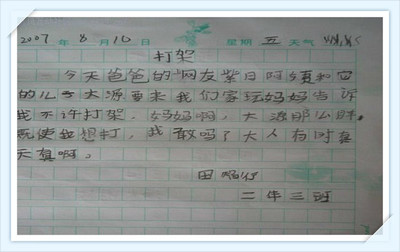 2007年8月10日 星期五 天气
打架
今天爸爸的网友紫日阿姨和它
的儿子大源要来我们家玩妈妈告诉
我不许打架,妈妈啊,大源那么胖。
既使我想打,我敢吗了大人有时真
天真啊。
田
二年三班